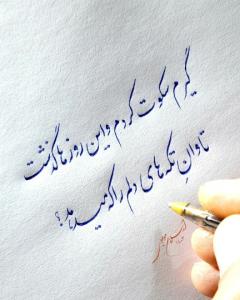 گیرم سکوت کردم و این روزها گذشت
تاوان تکه های دلم را که میدهد؟